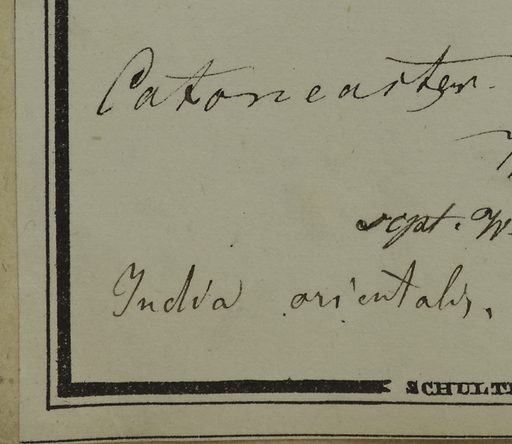 Catoneaster
sept. W
India orientalis.
SCHULT